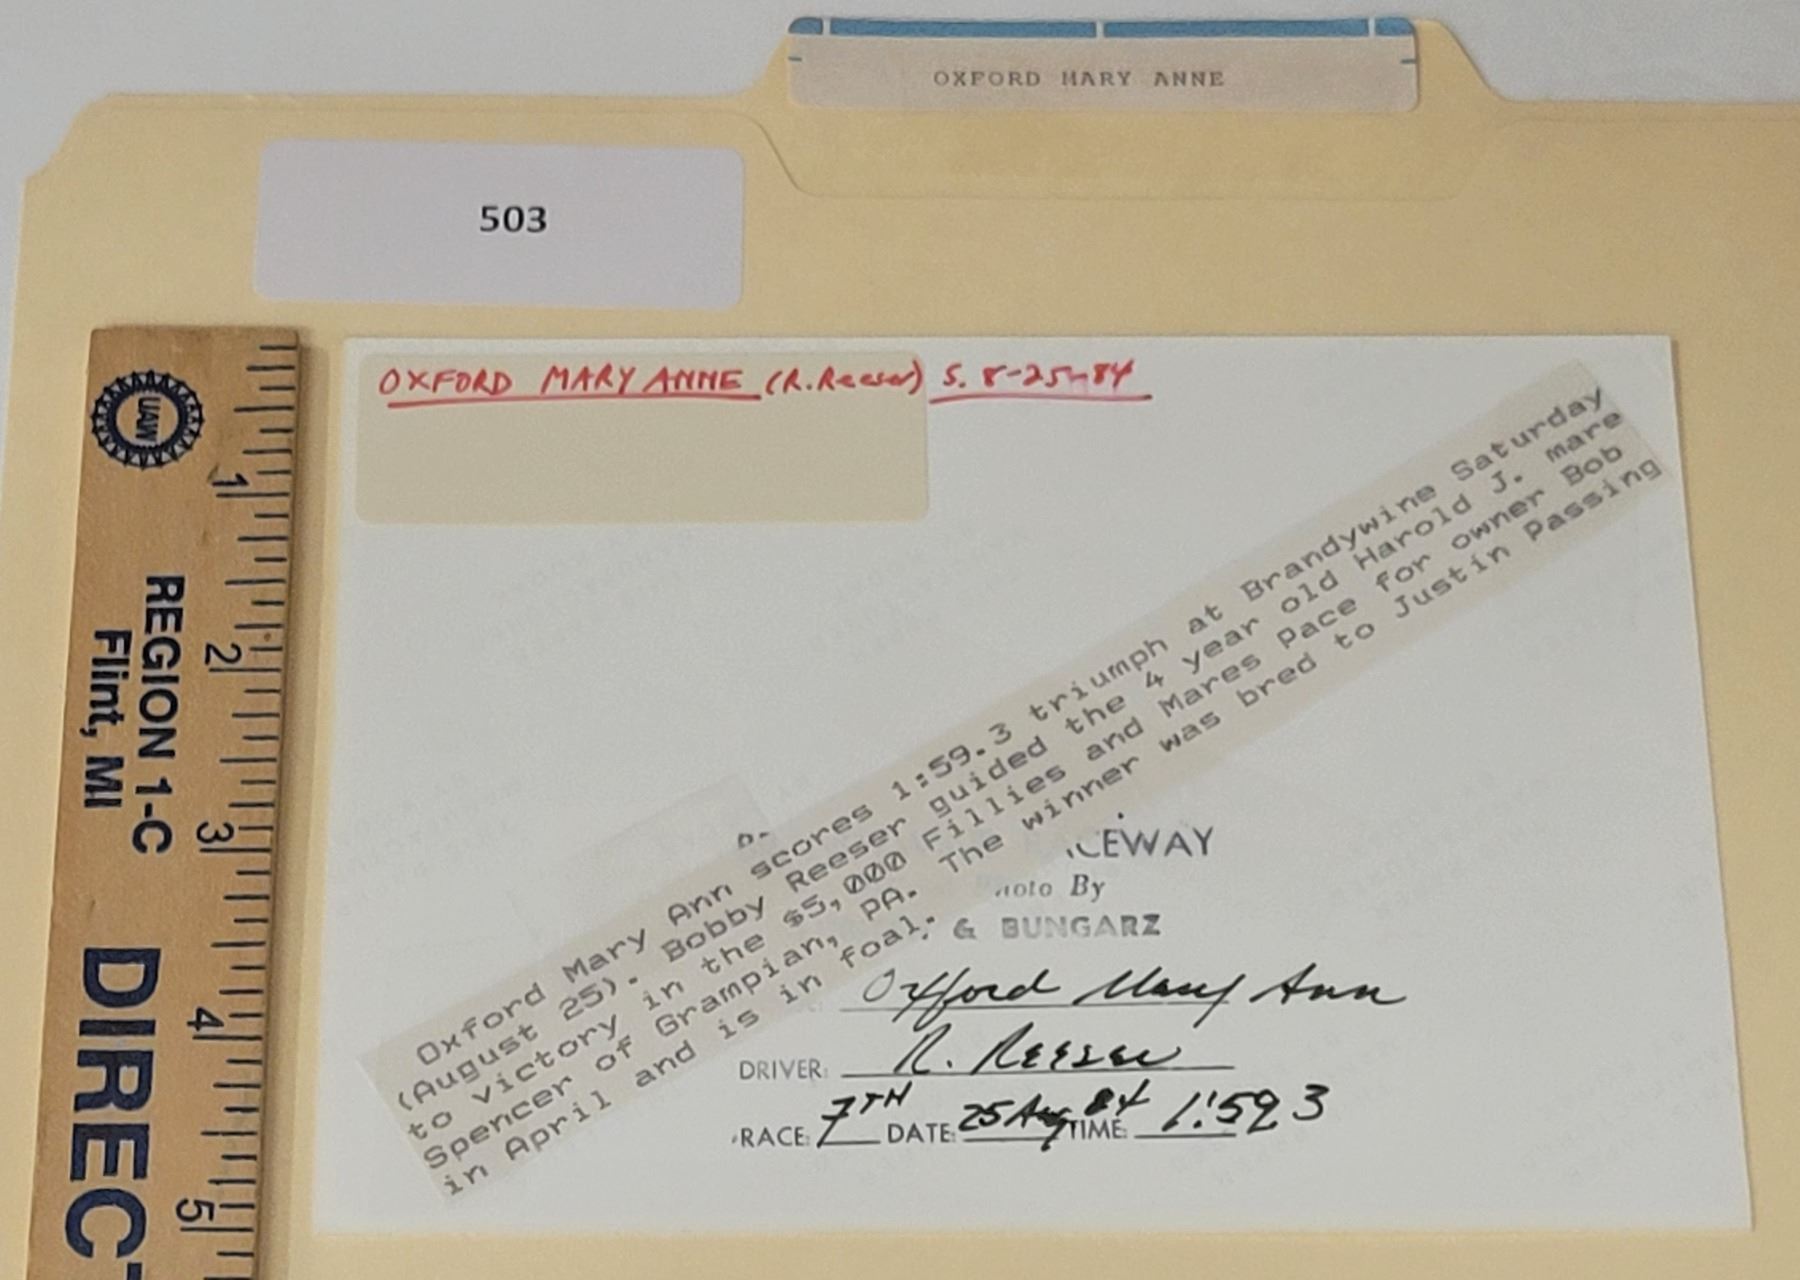 OXFORD MARY ANNE
503
OXFORD MARY ANNE (R. Reeser) S. 8-25-84
Oxford Mary Ann scores 1:59.3 triumph at Brandywine Saturday
(August 25). Bobby Reeser guided the 4 year old Harold J. mare
to victory in the $5,000 Fillies and Mares pace for owner Bob
Spencer of Grampian, PA. The winner was bred to Justin Passing
in April and is in foal.
By
& BUNGARZ
Oxford Mary Ann
DRIVER: R. Reeser
RACE: 7TH DATE: 25 Aug 84 TIME: 1:59.3
UAW
REGION 1-C
Flint, MI
1
2
3
4
5